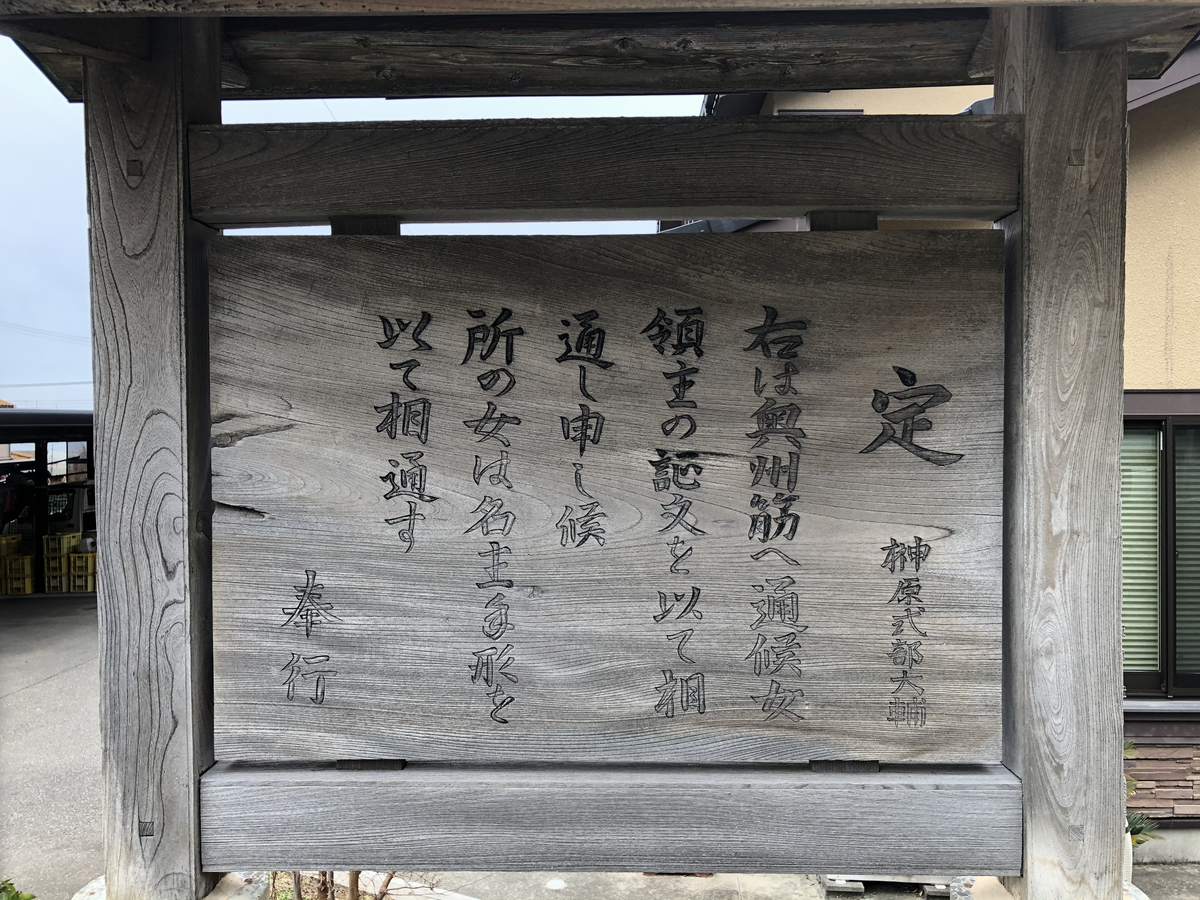 定
榊原式部大輔
右は奥州筋へ通候女
領主の証文を以て相
通し申し候
所の女は名主手形を
以て相通す
奉行